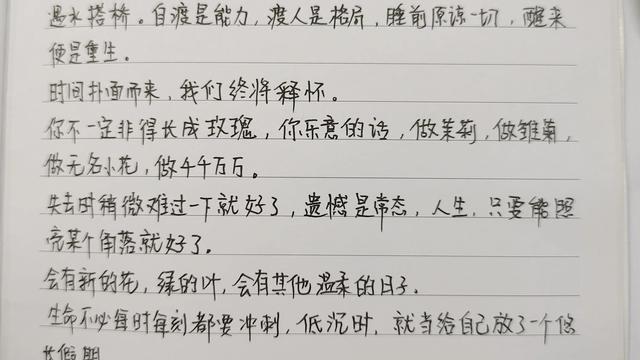 遇水搭桥。自渡是能力，渡人是格局，睡前原谅一切，醒来
便是重生。
时间扑面而来，我们终将释怀。
你不一定非得长成玫瑰，你乐意的话，做茉莉，做雏菊，
做无名小花，做千千万万。
失去时稍微难过一下就好了，遗憾是常态，人生，只要能照
亮某个角落就好了。
会有新的花，绿的叶，会有其他温柔的日子。
生命不必每时每刻都要冲刺，低沉时，就当给自己放了一个悠
长假期